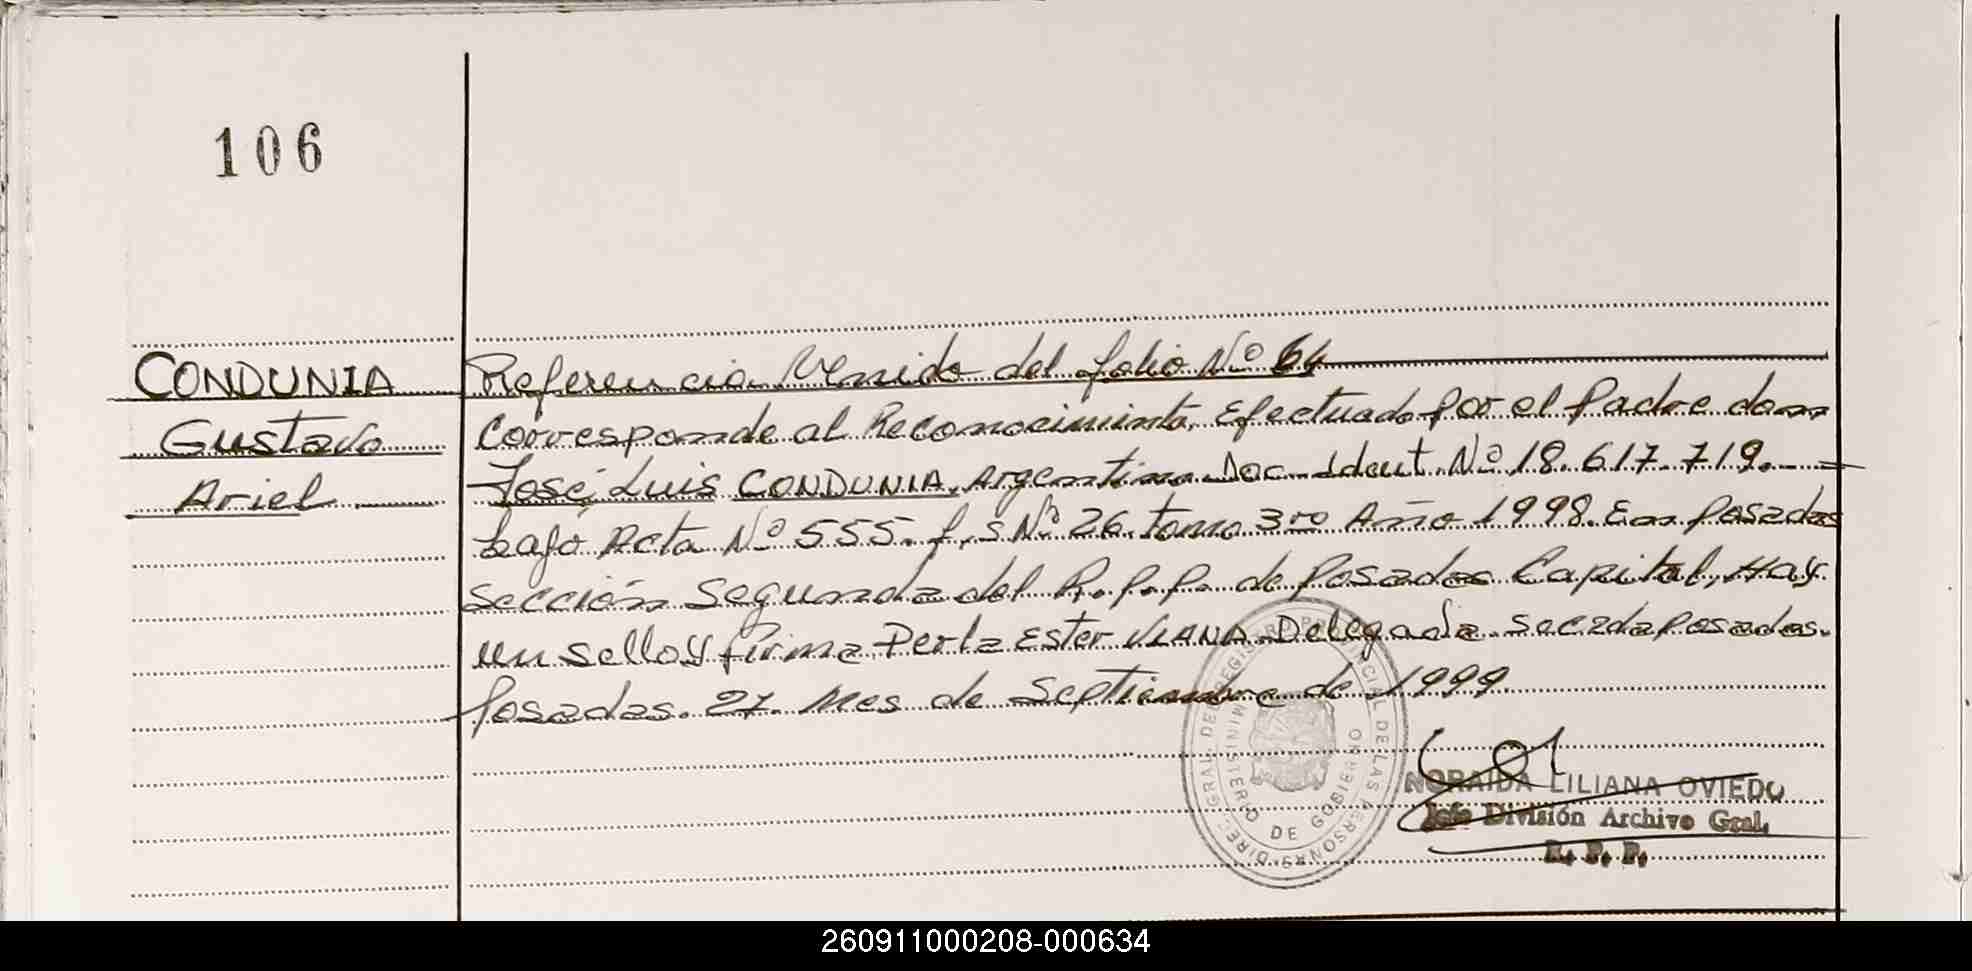 106
CONDUNIA
Gustavo
Ariel
Referencia Venido del folio Nº 64
Corresponde al Reconocimiento, Efectuado por el Padre don
José Luis CONDUNIA, Argentino Doc. Ident. Nº 18.617.719.
bajo Acta Nº 555. f,s Nº 26. tomo 3ro Año 1998. En Posadas
Sección Segunda del R.P.P. de Posadas Capital, Hay
un sello y firma Perla Ester VIANA Delegada Sec 2da Posadas.
Posadas. 27. Mes de Septiembre de 1999
DIREC. GRAL. DEL REGISTRO PROVINCIAL DE LAS PERSONAS
MINISTERIO DE GOBIERNO
NORAIDA LILIANA OVIEDO
Jefe División Archivo Gral.
R. P. P.
260911000208-000634